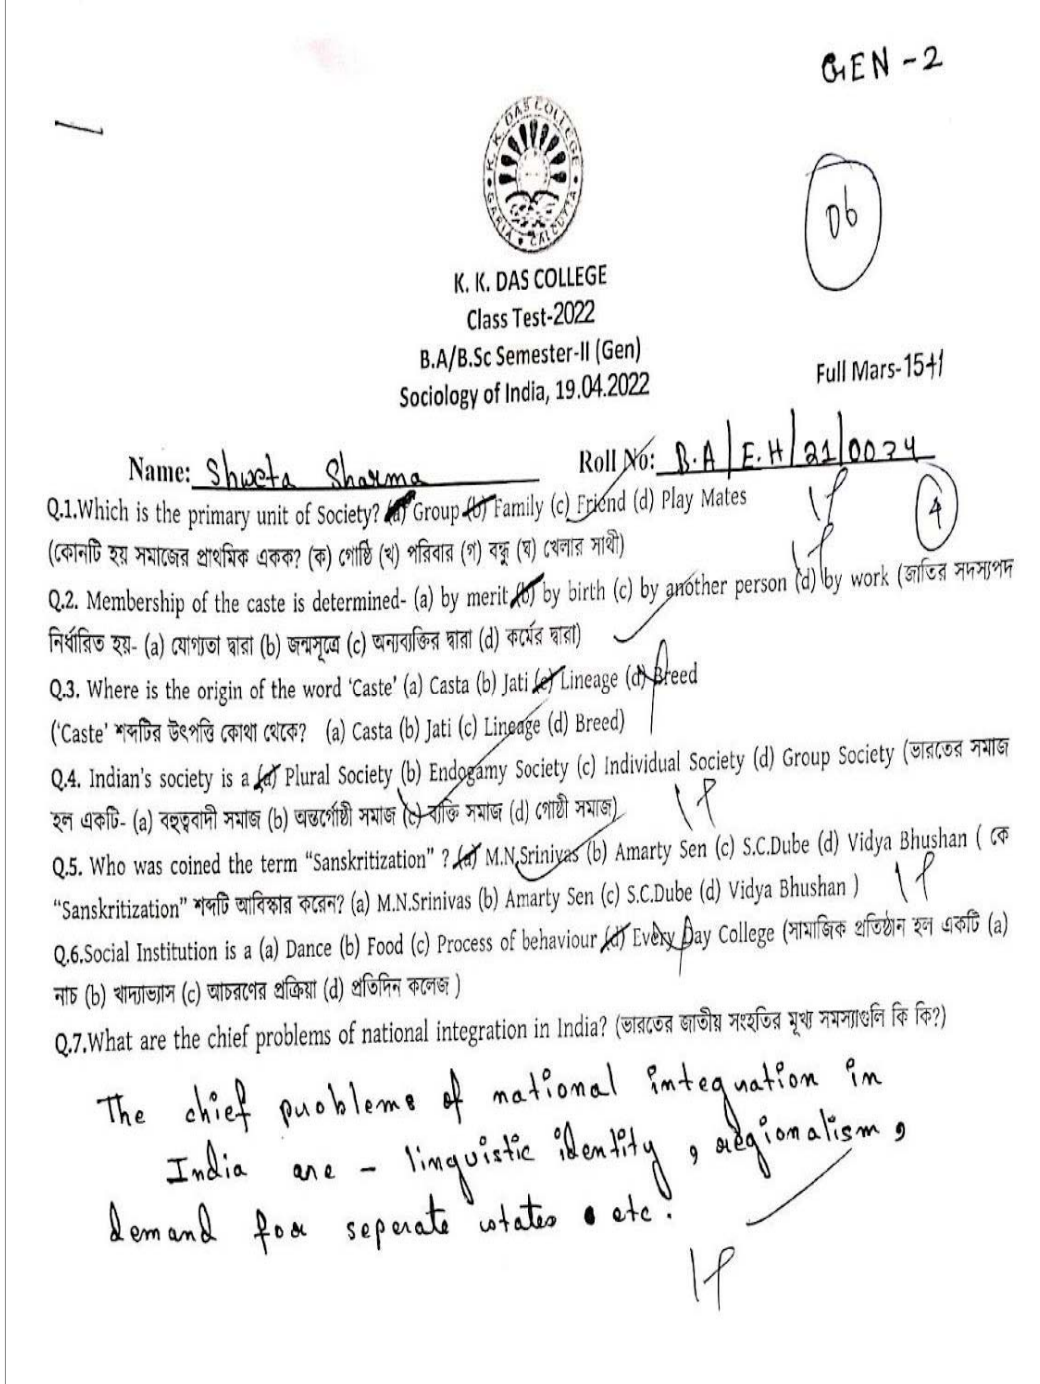 GEN-2
06
K. K. DAS COLLEGE
GARIA CALCUTTA
K. K. DAS COLLEGE
Class Test-2022
B.A/B.Sc Semester-II (Gen)
Full Mars-15+1
Sociology of India, 19.04.2022
Name: Shweta Sharma Roll No: B.A/E.H/21/0074
Q.1.Which is the primary unit of Society? (a) Group (b) Family (c) Friend (d) Play Mates
4
(কোনটি হয় সমাজের প্রাথমিক একক? (ক) গোষ্ঠি (খ) পরিবার (গ) বন্ধু (ঘ) খেলার সাথী)
Q.2. Membership of the caste is determined- (a) by merit (b) by birth (c) by another person (d) by work (জাতির সদস্যপদ
নির্ধারিত হয়- (a) যোগ্যতা দ্বারা (b) জন্মসূত্রে (c) অন্যব্যক্তির দ্বারা (d) কর্মের দ্বারা)
Q.3. Where is the origin of the word ‘Caste’ (a) Casta (b) Jati (c) Lineage (d) Breed
(‘Caste’ শব্দটির উৎপত্তি কোথা থেকে? (a) Casta (b) Jati (c) Lineage (d) Breed)
Q.4. Indian's society is a (a) Plural Society (b) Endogamy Society (c) Individual Society (d) Group Society (ভারতের সমাজ
হল একটি- (a) বহুত্ববাদী সমাজ (b) অন্তর্গোষ্ঠী সমাজ (c) ব্যক্তি সমাজ (d) গোষ্ঠী সমাজ)
Q.5. Who was coined the term “Sanskritization” ? (a) M.N.Srinivas (b) Amarty Sen (c) S.C.Dube (d) Vidya Bhushan ( কে
“Sanskritization” শব্দটি আবিষ্কার করেন? (a) M.N.Srinivas (b) Amarty Sen (c) S.C.Dube (d) Vidya Bhushan )
Q.6.Social Institution is a (a) Dance (b) Food (c) Process of behaviour (d) Every Day College (সামাজিক প্রতিষ্ঠান হল একটি (a)
নাচ (b) খাদ্যাভ্যাস (c) আচরণের প্রক্রিয়া (d) প্রতিদিন কলেজ )
Q.7.What are the chief problems of national integration in India? (ভারতের জাতীয় সংহতির মুখ্য সমস্যাগুলি কি কি?)
The chief problems of national integration in
India are - linguistic identity, regionalism,
demand for seperate states etc.